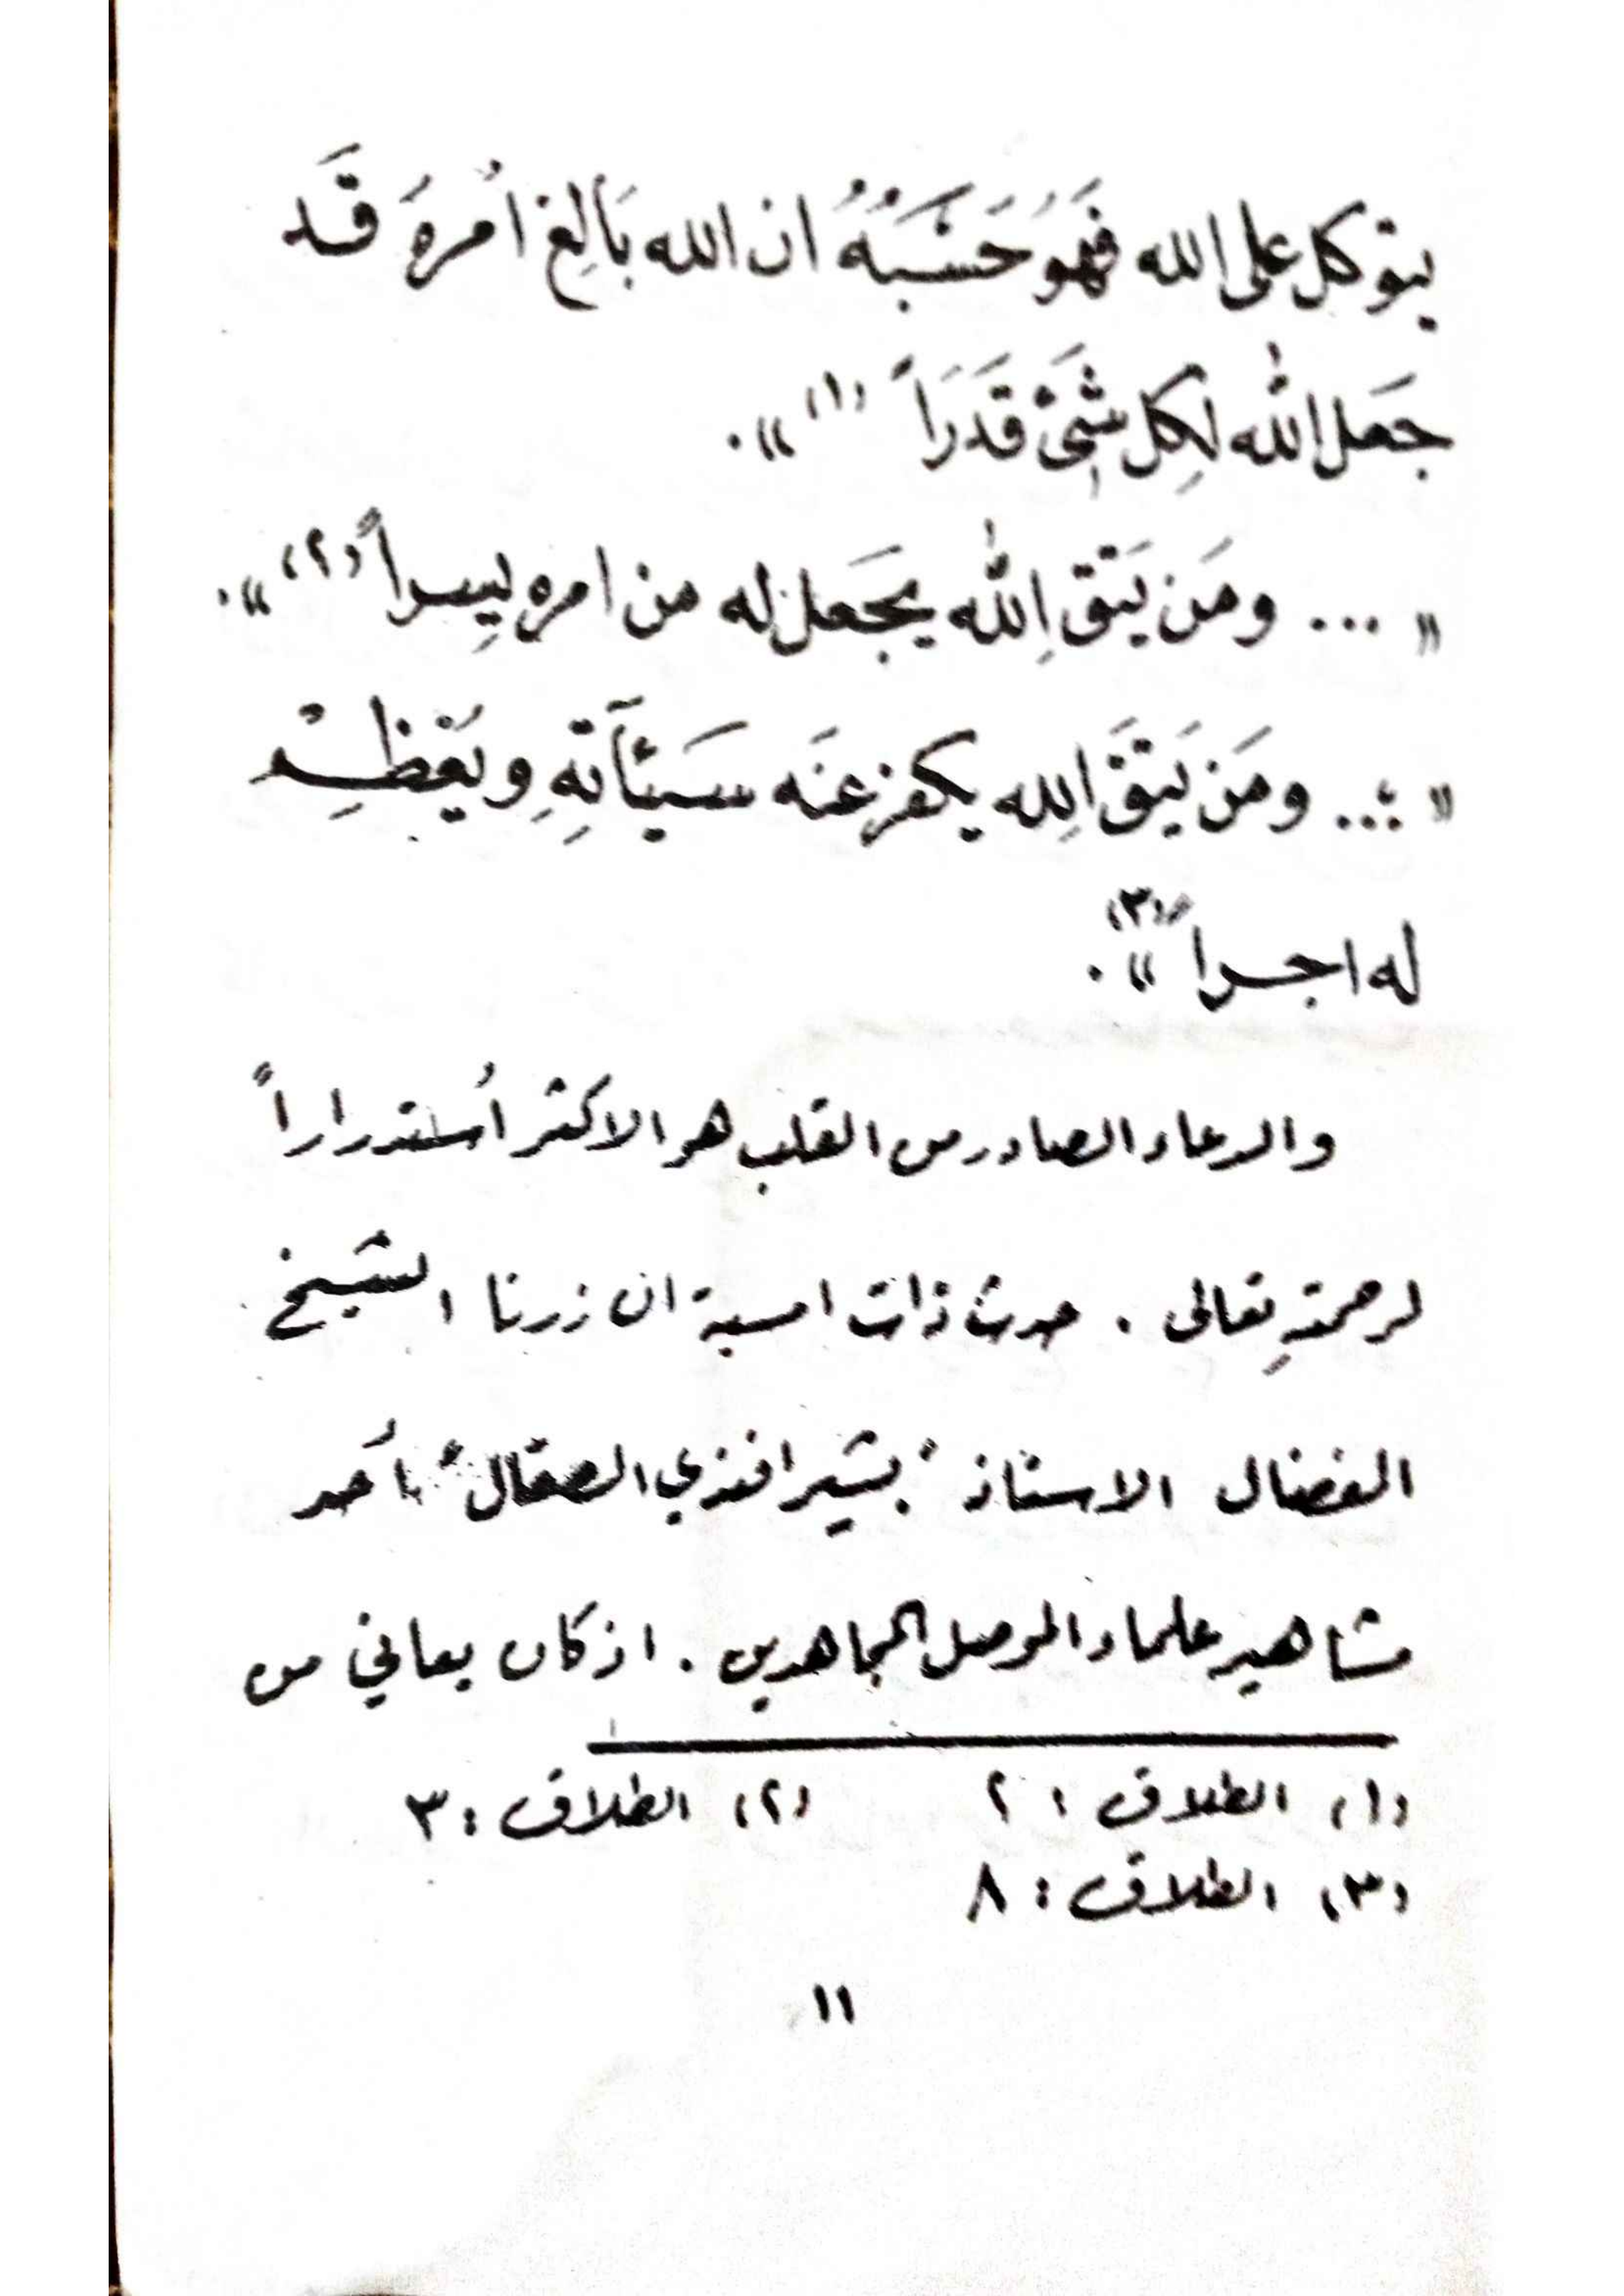 يتوكل على الله فَهُوَ حَسْبُهُ ان الله بَالِغ اُمرهُ قَد
جَعل الله لِكل شَئٍ قَدَرَاً (١) »٠
« ... ومَن يَتق اِلله يجَعل له من امره يِسراً (٢) »٠
« ... ومَن يَتقَ اِلله يكفر عنَه سَيئآتهِ ويُعْظِمْ
له اجراً (٣) »٠
والدعاء الصادر من القلب هو الاكثر اُستدراراً
لرحمتهِ تعالى ٠ حدث ذات امسية ان زرنا الشيخ
الفضال الاستاذ "بشير افندي الصقال" أحد
مشاهير علماء الموصل المجاهدين ٠ اذ كان يعاني من
(١) الطلاق : ٢ (٢) الطلاق : ٣
(٣) الطلاق : ٨
١١